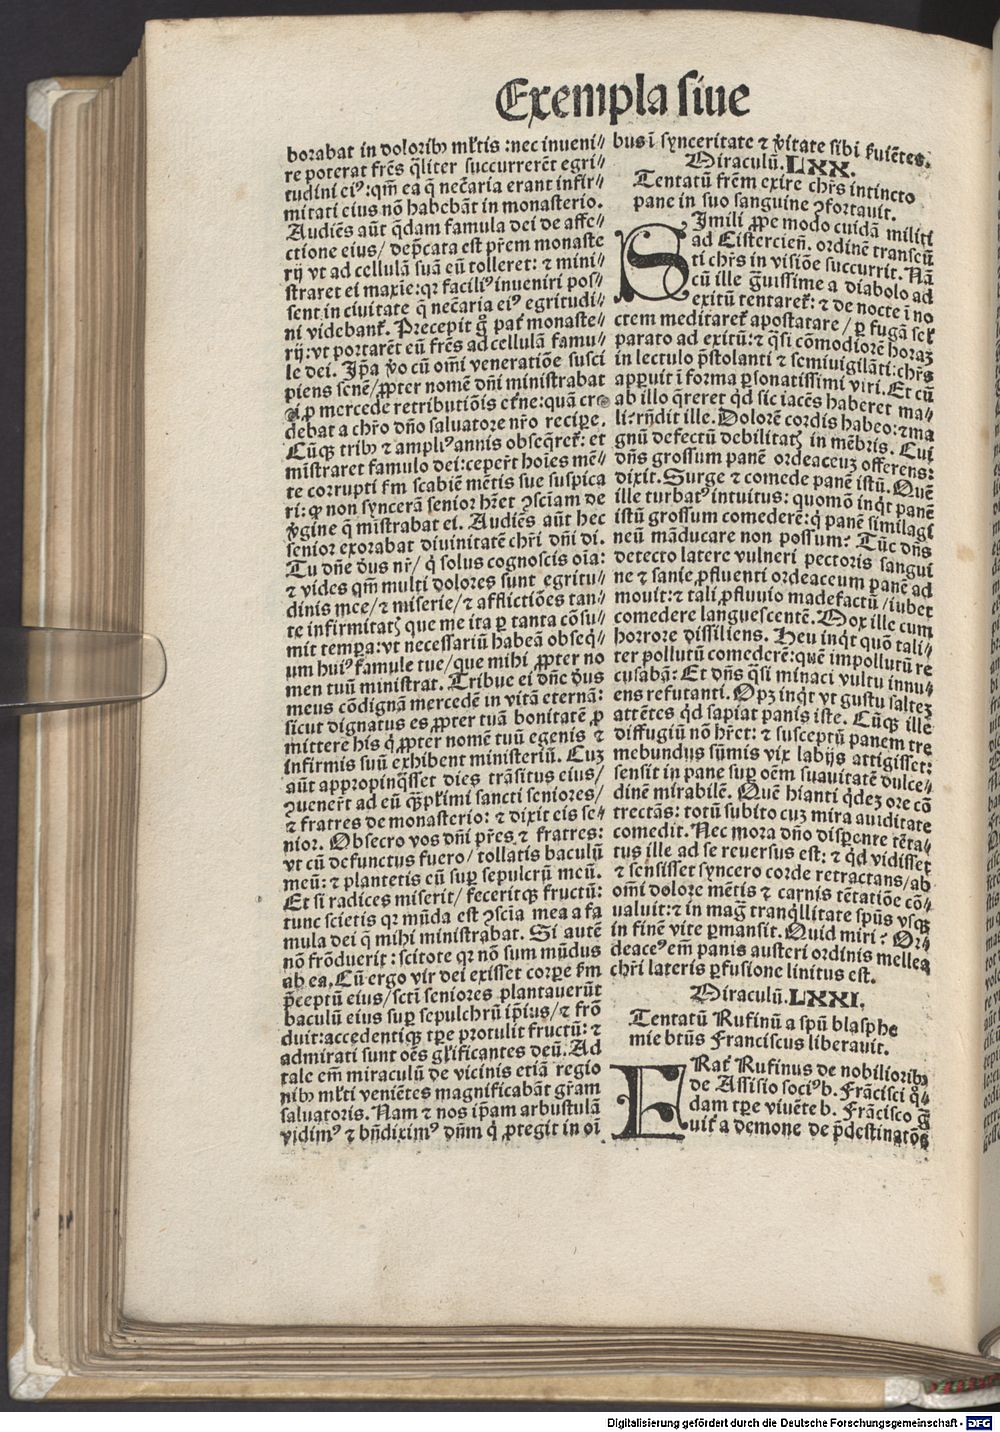 Exempla siue
borabat in doloribꝰ mľtis : nec inueni⸗
re poterat frẽs q̃liter succurrerẽt egri⸗
tudini eiꝰ : qm̃ ea q̃ necãria erant infir⸗
mitati eius nõ habebãt in monasterio.
Audiẽs aũt q̃dam famula dei de affe⸗
ctione eius / dep̃cata est p̃rem monaste
rij vt ad cellulã suã eũ tolleret : ⁊ mini⸗
straret ei maxie : qꝛ faciliꝰ inueniri pos⸗
sent in ciuitate q̃ necãria eiꝰ egritudi⸗
ni videbant̃. Precepit g̊ pat̃ monaste⸗
rij : vt portarẽt eũ frẽs ad cellulã famu⸗
le dei. Ip̃a v̊o cũ om̃i veneratiõe susci
piens senẽ / ꝓpter nomẽ dñi ministrabat
ei ꝓ mercede retributiõis et̃ne : quã cre
debat a chr̃o dño saluatore nr̃o recipe.
Cũqꝫ tribꝰ ⁊ ampliꝰ annis obseq̃ret̃ : et
mĩstraret famulo dei : ceper̃t hoĩes mẽ⸗
te corrupti ẜm scabiẽ mẽtis sue suspica
ri : ꝙ non syncerã senior hr̃et ꝯsciam de
v̊gine q̃ mĩstrabat ei. Audiẽs aũt hec
senior exorabat diuinitatẽ chr̃i dñi di.
Tu dñe d̃us nr̃ / q̇ solus cognoscis oĩa :
⁊ vides qm̃ multi dolores sunt egritu⸗
dinis mee / ⁊ miserie / ⁊ afflictiões tan⸗
te infirmitatꝭ que me ita ꝑ tanta cõsu⸗
mit tempꝑa : vt necessariũ habeã obseq̇⸗
um huiꝰ famule tue / que mihi ꝓpter no
men tuũ ministrat. Tribue ei dñe d̃us
meus cõdignã mercedẽ in vitã eternã :
sicut dignatus es ꝓpter tuã bonitatẽ ꝓ
mittere his q̇ ꝓpter nomẽ tuũ egenis ⁊
infirmis suũ exhibent ministeriũ. Cuꝫ
aũt appropinq̃sset dies trãsitus eius /
ꝯuener̃t ad eũ q̃ꝫpľimi sancti seniores /
⁊ fratres de monasterio : ⁊ dixit eis se⸗
nior. Obsecro vos dñi p̃res ⁊ fratres :
vt cũ defunctus fuero / tollatis baculũ
meũ : ⁊ plantetis eũ suꝑ sepulcrũ meũ.
Et si radices miserit / feceritqꝫ fructũ :
tunc scietis qꝛ mũda est ꝯscĩa mea a fa
mula dei q̃ mihi ministrabat. Si autẽ
nõ frõduerit : scitote qꝛ nõ sum mũdus
ab ea. Cũ ergo vir dei exisset corpe ẜm
p̃ceptũ eius / sctĩ seniores plantauerũt
baculũ eius suꝑ sepulchrũ ip̃ius / ⁊ frõ
duit : accedentiqꝫ tp̃e protulit fructũ : ⁊
admirati sunt oẽs gľificantes deũ. Ad
tale em̃ miraculũ de vicinis etiã regio
nibꝰ mľti veniẽtes magnificabãt gr̃am
saluatoris. Nam ⁊ nos ip̃am arbustulã
vidimꝰ ⁊ bñdiximꝰ dñm q̇ ꝓtegit in oĩ
bus ĩ synceritate ⁊ v̊itate sibi ẜuiẽtes.
Miraculũ. LXX.
Tentatũ frẽm exire chr̃s intincto
pane in suo sanguine ꝯfortauit.
SImili ꝓpe modo cuidã militi
ad Cistercieñ. ordinẽ transeũ
ti chr̃s in visiõe succurrit. Nã
cũ ille g̃uissime a diabolo ad
exitũ tentaret̃ : ⁊ de nocte ĩ no
ctem meditaret̃ apostatare / ꝑ fugã set̃
parato ad exitũ : ⁊ q̃si cõmodiorẽ horaꝫ
in lectulo p̃stolanti ⁊ semiuigilãti : chr̃s
apꝑuit ĩ forma ꝑsonatissimi viri. Et cũ
ab illo q̃reret qd̾ sic iacẽs haberet ma⸗
li : rñdit ille. Dolorẽ cordis habeo : ⁊ ma
gnũ defectũ debilitatꝭ in mẽbris. Cui
dñs grossum panẽ ordeaceuꝫ offerens :
dixit. Surge ⁊ comede panẽ istũ. Quẽ
ille turbatꝰ intuitus : quomõ inq̇t panẽ
istũ grossum comederẽ : q̇ panẽ similagi
neũ mãducare non possum? Tũc dñs
detecto latere vulneri pectoris sangui
ne ⁊ sanie ꝓfluenti ordeaceum panẽ ad
mouit : ⁊ tali ꝓfluuio madefactũ / iubet
comedere languescentẽ. Mox ille cum
horrore dissiliens. Heu inq̇t quõ tali⸗
ter pollutũ comederẽ : quẽ impollutũ re
cusabã : Et dñs q̃si minaci vultu innu⸗
ens refutanti. Opꝫ inq̇t vt gustu salteꝫ
attẽtes qd̾ sapiat panis iste. Cũqꝫ ille
diffugiũ nõ hr̃et : ⁊ susceptũ panem tre
mebundus sũmis vix labijs attigisset :
sensit in pane suꝑ oẽm suauitatẽ dulce⸗
dinẽ mirabilẽ. Quẽ hianti q̇deꝫ ore cõ
trectãs : totũ subito cuꝫ mira auiditate
comedit. Nec mora dño dispẽnte tẽta⸗
tus ille ad se reuersus est : ⁊ qd̾ vidisset
⁊ sensisset syncero corde retractans / ab
om̃i dolore mẽtis ⁊ carnis tẽtatiõe cõ⸗
ualuit : ⁊ in mag̃ tranq̇llitate sp̃us vsqꝫ
in finẽ vite ꝑmansit. Quid miri? Or⸗
deaceꝰ em̃ panis austeri ordinis mellea
chr̃i lateris ꝑfusione linitus est.
Miraculũ. LXXI.
Tentatũ Rufinũ a spũ blasphe
mie btũs Franciscus liberauit.
ERat̃ Rufinus de nobilioribꝰ
de Assisio sociꝰ b. Frãcisci q̊⸗
dam tp̃e viuẽte b. Frãcisco g̃
uit̃ a demone de p̃destinatõe
Digitalisierung gefördert durch die Deutsche Forschungsgemeinschaft - DFG